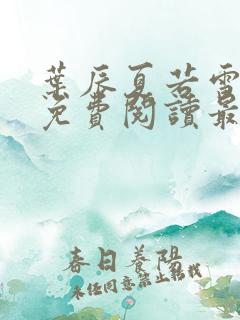 葉辰夏若雪
免費閱讀最
春日養陽
未任同意禁止轉載